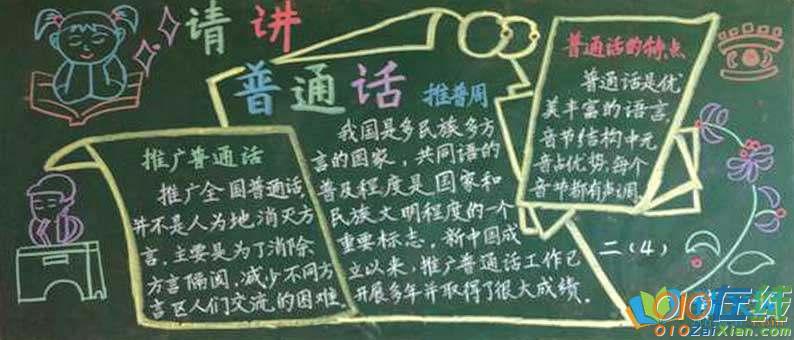 请讲
普通话 推普周
推广普通话
推广全国普通话，
并不是人为地消灭方
言，主要是为了消除
方言隔阂，减少不同方
言区人们交流的困难。
我国是多民族多方
言的国家，共同语的
普及程度是国家和
民族文明程度的一个
重要标志。新中国成
立以来，推广普通话工作已
开展多年并取得了很大成绩。
普通话的特点
普通话是优
美丰富的语言，
音节结构中元
音占优势，每个
音节都有声调。
二（4）
010在线
010ZaiXian.com